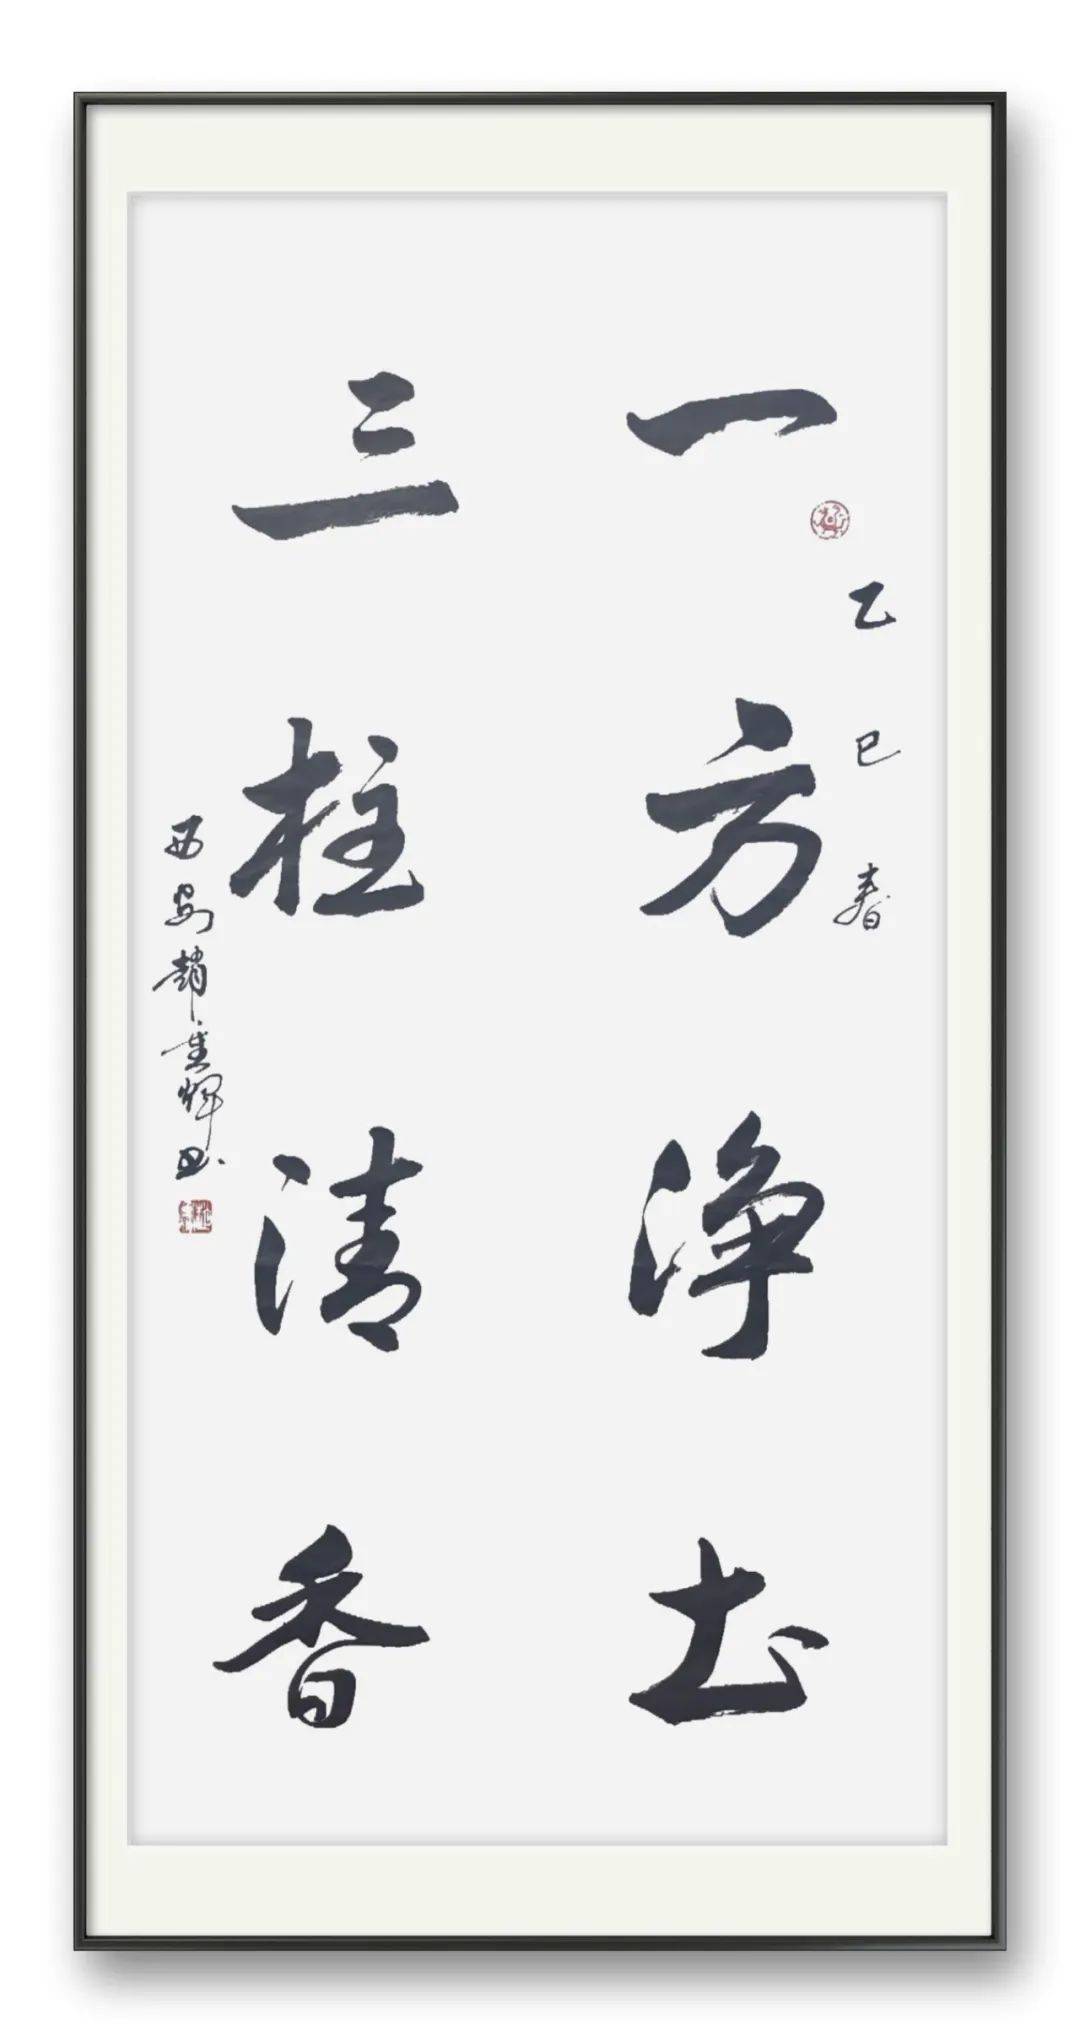 一方净土
三柱清香
乙巳春
西安赵重辉书